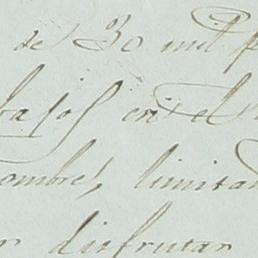 de 30 mil p
bajos en el
ombres, limitan
r disfrutar